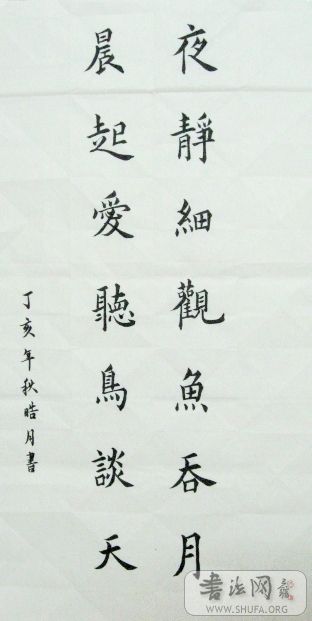 夜靜細觀魚吞月
晨起愛聽鳥談天
丁亥年秋晧月書
书法网
WWW.SHUFA.ORG